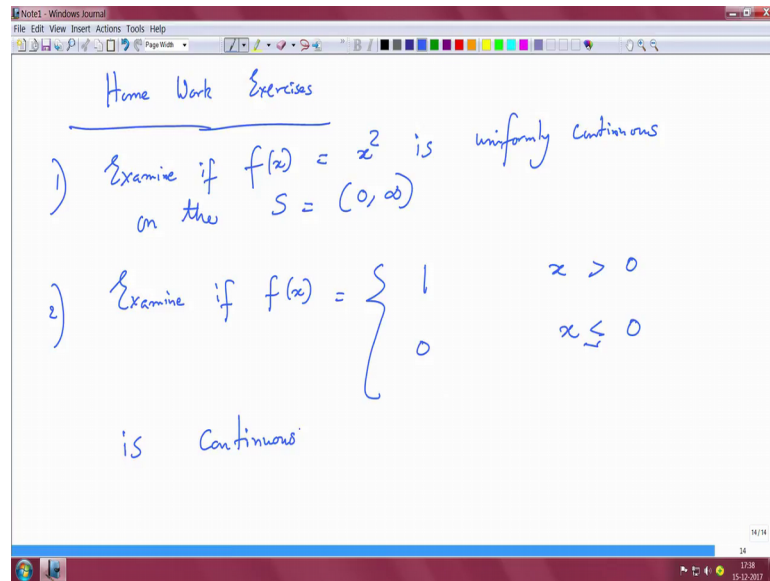 Note1 - Windows Journal
File Edit View Insert Actions Tools Help
Page Width
B I
Home Work Exercises
1) Examine if f(x) = x² is uniformly continuous
on the S = (0, ∞)
2) Examine if f(x) = { 1 x > 0
0 x ≤ 0
is Continuous
14/14
14
17:38
15-12-2017